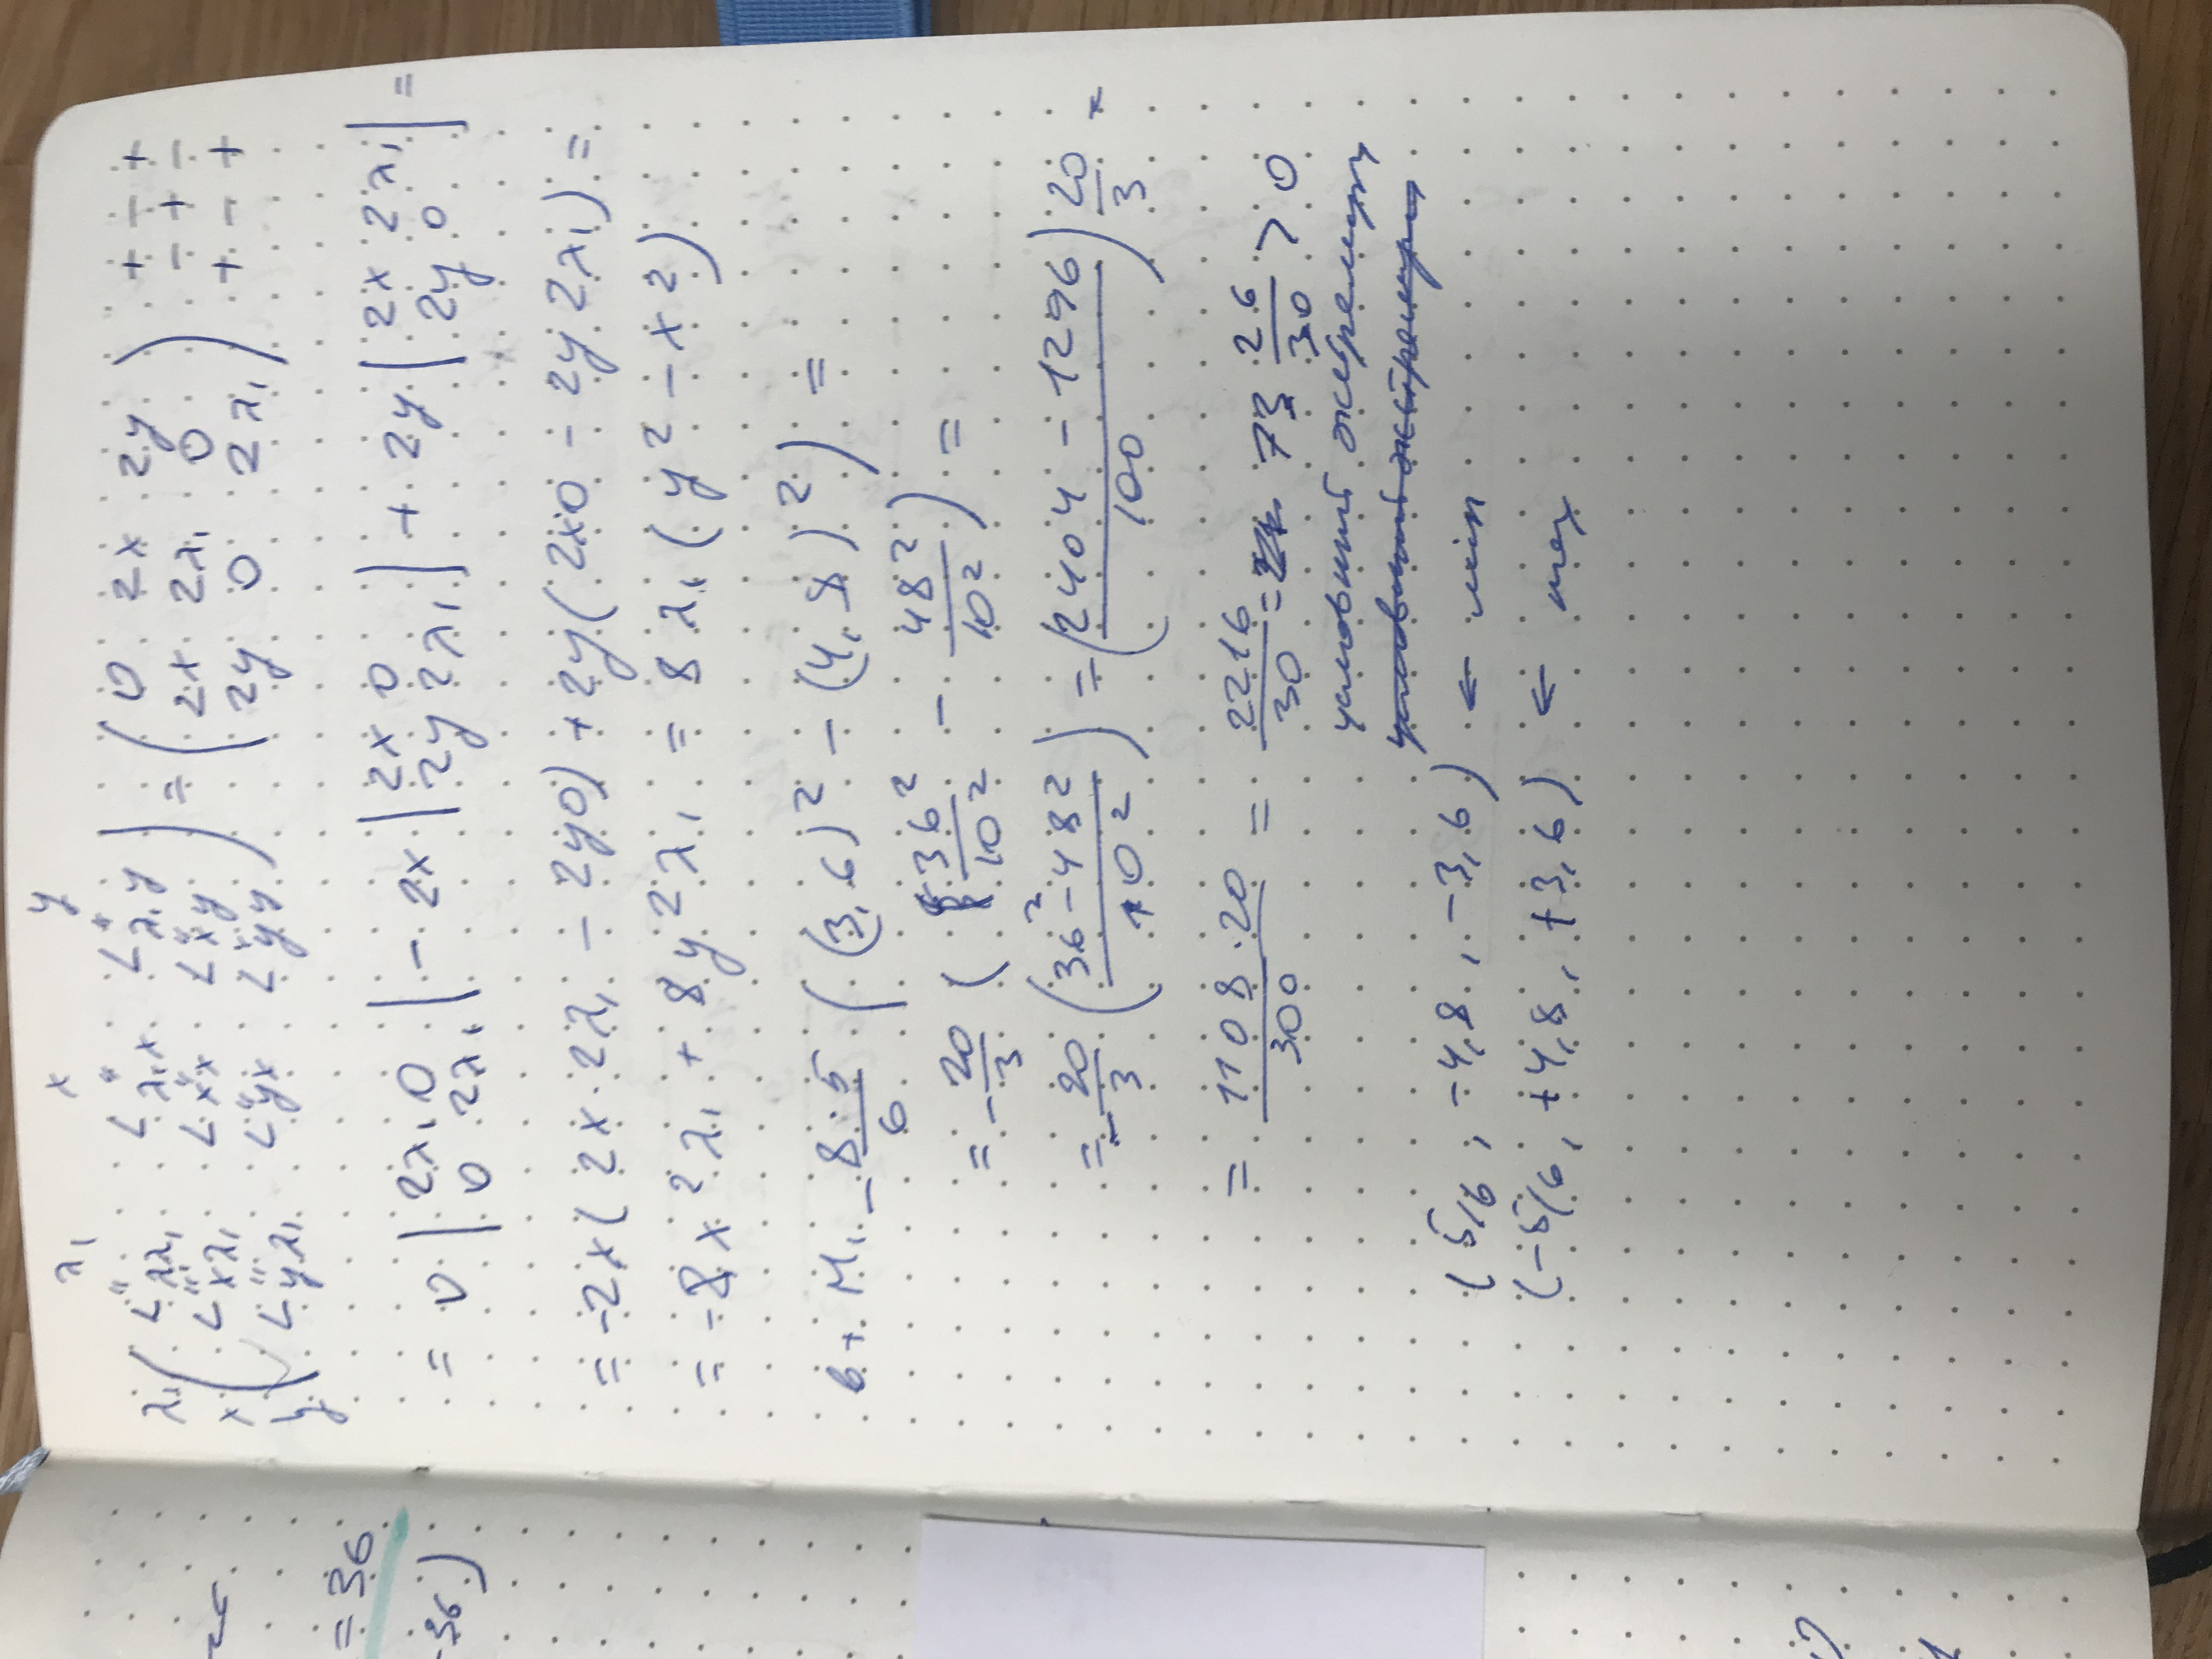 = 36
-36)
λ₁ x y
λ₁ ( L''λλ₁ L''λ₁x L''λ₁y ) = ( 0 2x 2y ) + - +
x L''xλ₁ L''xx L''xy 2x 2λ₁ 0 - + -
y L''yλ₁ L''yx L''yy 2y 0 2λ₁ + - +
= 0 | 2λ₁ 0 | - 2x | 2x 0 | + 2y | 2x 2λ₁ | =
0 2λ₁ 2y 2λ₁ 2y 0
= -2x ( 2x · 2λ₁ - 2y0) + 2y ( 2x0 - 2y 2λ₁) =
= -8x²λ₁ + 8y²λ₁ = 8λ₁ ( y² - x²)
в т. M₁ - 8·5/6 ( (3,6)² - (4,8)² ) =
= - 20/3 ( 36²/10² - 48²/10² ) =
= - 20/3 ( 36² - 48² / 10² ) = ( 2404 - 1296 / 100 ) 20/3 =
= 1108·20 / 300 = 2216/30 = 73 26/30 > 0
условный экстремум
условный экстремум
( 5/6 , -4,8 , -3,6 ) ← min
( -5/6 , +4,8 , +3,6 ) ← max